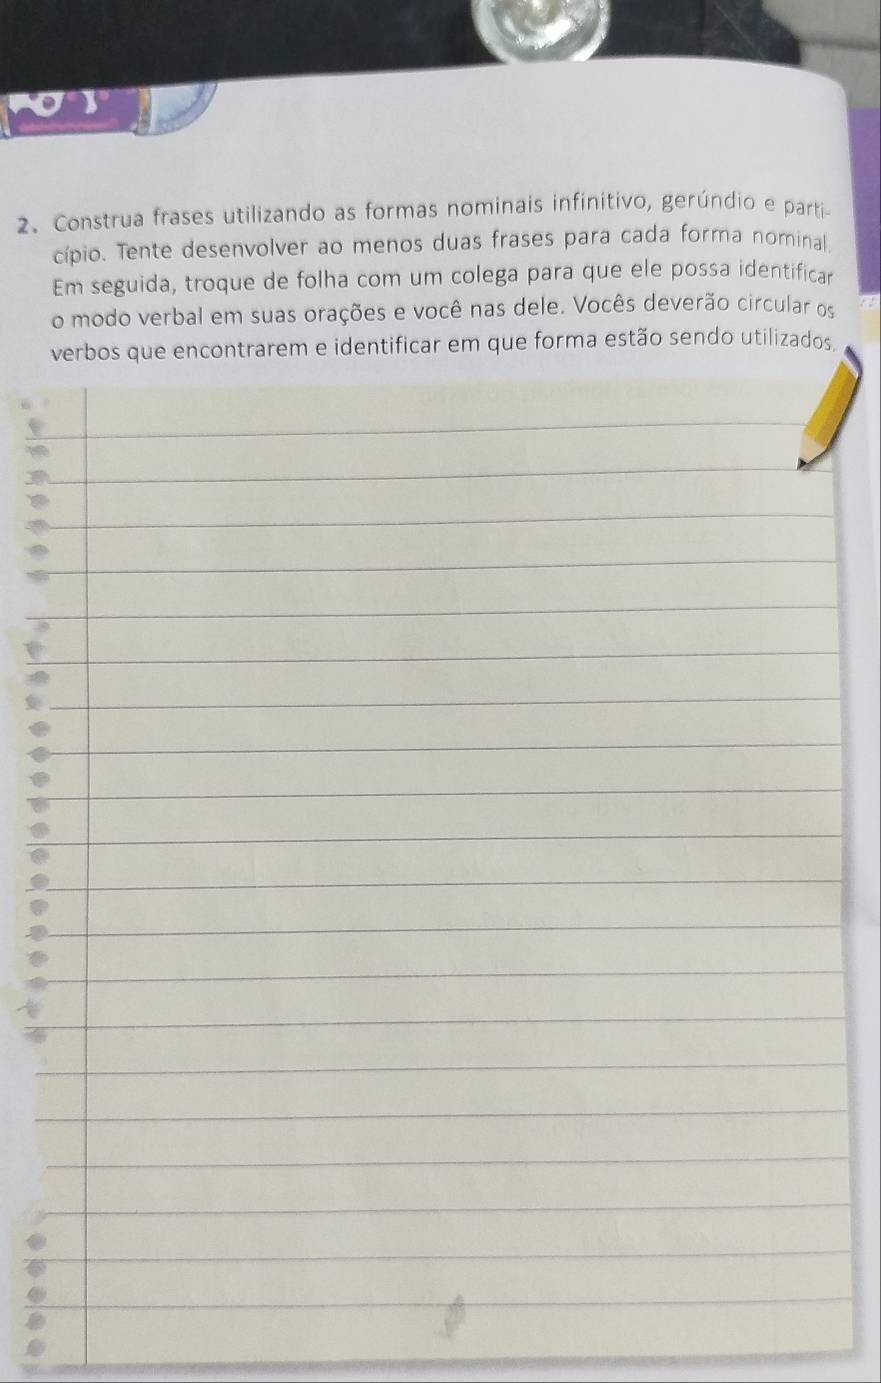 2. Construa frases utilizando as formas nominais infinitivo, gerúndio e parti-
cípio. Tente desenvolver ao menos duas frases para cada forma nominal.
Em seguida, troque de folha com um colega para que ele possa identificar
o modo verbal em suas orações e você nas dele. Vocês deverão circular os
verbos que encontrarem e identificar em que forma estão sendo utilizados.